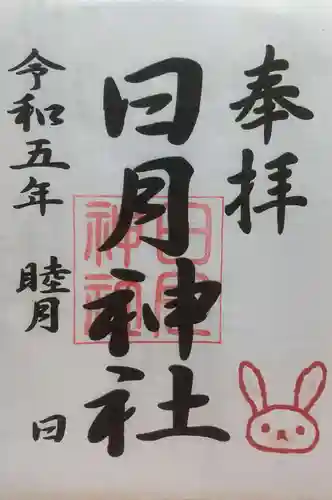 奉拝
日月神社
日月神社
令和五年 睦月 日